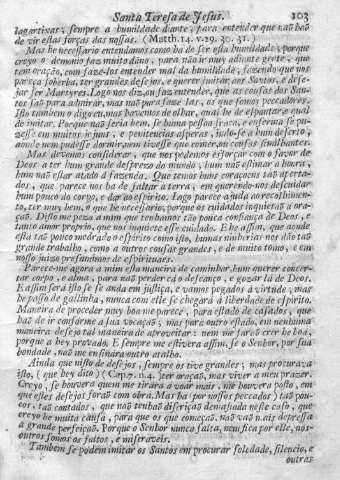 Santa Teresa de Jesus. 103
lagartixas, sempre a humildade diante, para entender que naõ haõ
de vir estas forças das nossas. (Matth. 14. v. 29. 30. 31.)
Mas he necessario entendamos como ha de ser esta humildade, porque
creyo o demonio faz muito dãno, para não ir muy adiante gente, que
tem oraçaõ, com faze-los entender mal da humildade, fazendo que nos
pareça soberba, ter grandes desejos, e querer imitar aos Santos, e dese-
jar ser Martyres. Logo nos diz, ou faz entender, que as cousas dos San-
tos saõ para admirar, mas naõ para faze-las, os que somos peccadores.
Isto tambem o digo eu, mas havemos de olhar, qual he de espantar, e qual
de imitar. Porque naõ seria bem, se huma pessoa fraca, e enferma se pu-
zesse em muitos jejuns, e penitencias asperas, indo-se a hum deserto,
aonde nem pudesse dormir, nem tivesse que comer, ou cousas semelhantes.
Mas devemos considerar, que nos podemos esforçar com o favor de
Deos a ter hum grande desprezo do mundo, hum naõ estimar a honra,
hum naõ estar atado á fazenda. Que temos huns corações taõ aperta-
dos, que parece nos ha de faltar a terra, em querendo-nos descuidar
hum pouco do corpo, e dar ao espirito. Logo parece ajuda ao recolhimen-
to, ter muy bem, o que he necessario; porque os cuidados inquietaõ a ora-
çaõ. Disto me peza a mim que tenhamos taõ pouca confiança de Deos, e
tanto amor proprio, que nos inquiete esse cuidado. E he assim, que aonde
está taõ pouco medrado o espirito como isto, humas ninherias nos daõ taõ
grande trabalho, como a outros cousas grandes, e de muito tomo, e em
nosso juizo presumimos de espirituaes.
Parece-me agora a mim esta maneira de caminhar, hum querer concer-
tar corpo, e alma, para naõ perder cá o descanço, e gozar lá de Deos.
E assim será isto se se anda em justiça, e vamos pegados à virtude; mas
he passo de gallinha, nunca com elle se chegará á liberdade de espirito.
Maneira de proceder muy boa me parece, para estado de casados, que
haõ de ir conforme a sua vocaçaõ; mas para outro estado, em nenhuma
maneira desejo tal maneira de aproveitar: nem me faraõ crer he boa,
porque a hey provado. E sempre me estivera assim, se o Senhor, por sua
bondade, naõ me ensinára outro atalho.
Ainda que nisto de desejos, sempre os tive grandes; mas procurava
isto, (que hey dito) (Cap. 7. n. 4.) ter oraçaõ, mas viver a meu prazer.
Creyo, se houvera quem me tirara a voar mais, me houvera posto, em
que estes desejos foraõ com obra. Mas ha (por nossos peccados) taõ pou-
cos, taõ contados, que naõ tenhaõ discriçaõ demasiada neste caso, que
creyo he muita causa, para que os que começaõ, naõ vaõ mais depressa
a grande perfeiçaõ. Porque o Senhor nunca falta, nem fica por elle, nós-
outros somos os faltos, e miseraveis.
Tambem se podem imitar os Santos em procurar soledade, silencio, e
outras